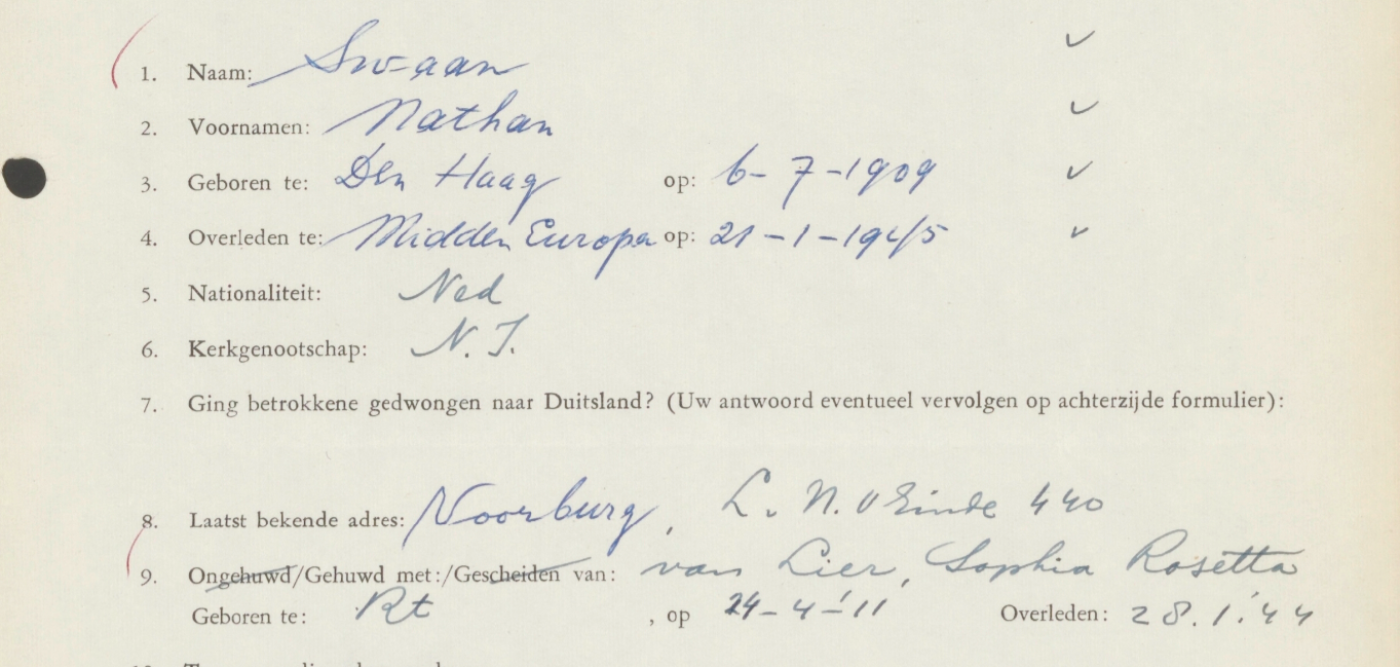 1. Naam: Swaan
2. Voornamen: Nathan
3. Geboren te: Den Haag op: 6-7-1909
4. Overleden te: Midden Europa op: 21-1-1945
5. Nationaliteit: Ned
6. Kerkgenootschap: N.I.
7. Ging betrokkene gedwongen naar Duitsland? (Uw antwoord eventueel vervolgen op achterzijde formulier):
8. Laatst bekende adres: Voorburg, L. N. O Einde 440
9. Ongehuwd/Gehuwd met:/Gescheiden van: van Lier, Sophia Rosetta
Geboren te: Rt , op 24-4-'11 Overleden: 28.1.'44